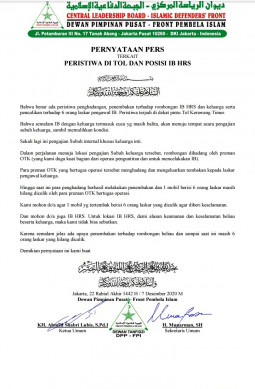 ديوان الرئاسة المركزي - الجبهة الدفاعية الإسلامية
CENTRAL LEADERSHIP BOARD - ISLAMIC DEFENDERS' FRONT
DEWAN PIMPINAN PUSAT - FRONT PEMBELA ISLAM
Jl. Petamburan III No. 17 Tanah Abang - Jakarta Pusat 10260 - DKI Jakarta - Indonesia
PERNYATAAN PERS
TERKAIT
PERISTIWA DI TOL DAN POSISI IB HRS
Bahwa benar ada peristiwa penghadangan, penembakan terhadap rombongan IB HRS dan keluarga serta
penculikan terhadap 6 orang laskar pengawal IB. Peristiwa terjadi di dekat pintu Tol Karawang Timur.
Bahwa semalam IB dengan keluarga termasuk cucu yg masih balita, akan menuju tempat acara pengajian
subuh keluarga, sambil memulihkan kondisi.
Sekali lagi ini pengajian Subuh internal khusus keluarga inti.
Dalam perjalanan menuju lokasi pengajian Subuh keluarga tersebut, rombongan dihadang oleh preman
OTK (yang kami duga kuat bagian dari operasi penguntitan dan untuk mencelakakan IB).
Para preman OTK yang bertugas operasi tersebut menghadang dan mengeluarkan tembakan kepada laskar
pengawal keluarga.
Hingga saat ini para penghadang berhasil melakukan penembakan dan 1 mobil berisi 6 orang laskar masih
hilang diculik oleh para preman OTK bertugas operasi.
Kami mohon do'a agar 1 yg tertembak dan 6 orang laskar yang diculik agar diberi keselamatan.
Dan mohon do'a juga IB HRS. Untuk lokasi IB HRS, demi alasan keamanan dan keselamatan beliau
beserta keluarga, maka kami tidak bisa sebutkan.
Karena semalam jelas ada upaya penembakan terhadap rombongan beliau dan sampai saat ini masih 6
orang laskar yang hilang diculik.
Demikian pernyataan ini kami buat
Jakarta, 22 Rabiul Akhir 1442 H / 7 Desember 2020 M
Dewan Pimpinan Pusat- Front Pembela Islam
KH. Ahmad Shabri Lubis, S.Pd.I
H. Munarman, SH
Ketua Umum
DEWAN TANFIDZI
DPP - FPI
Sekretaris Umum